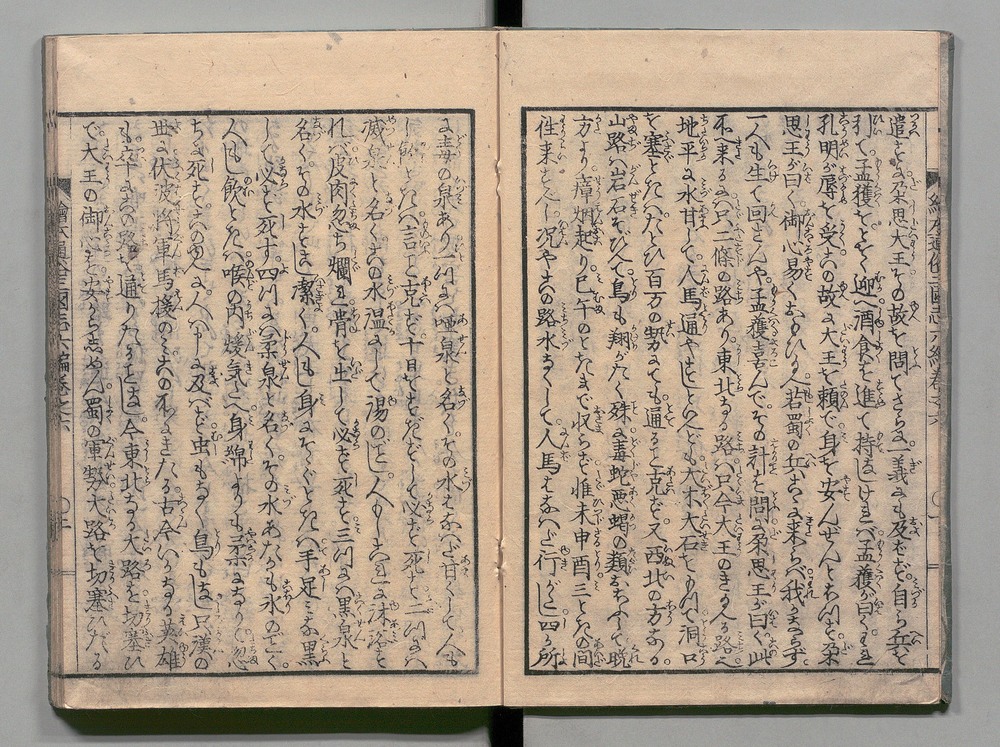 遣しける朶思大王その故を問てさらに義にも及ばず自ら兵を
引て孟獲をとく迎へ酒食を進て持なしければ孟獲が曰くわれ
孔明が辱を受この故に大王を頼で身を安んぜんとねがふ朶
思王が曰く御心易くおもひ給へ若蜀の兵こゝに来らば我かならず
一人も生て回さんや孟獲喜んでその計を問に朶思王が曰く此
不来る只二條の路あり東北なる路ハ只今大王のきたり給ふ路
地平に水甘くして人馬通やすしといへども大木大石をもつて洞口
を塞ときハたとひ百万の勢にても通ること克ず又西北の方なる
山路ハ岩石そひへて鳥も翔がたく殊に毒蛇悪蝎の類おほくして晩
方より瘴烟起り巳午のときまで収らず惟未申酉三ときの間
往来すべし況や此の路水なくして人馬ともに行がたし四か所
に毒の泉あり一つにハ唖泉と名くその水よのつね甘くして人も
し飲ときハ言こと克ず十日をすぎずして必ず死す二つにハ
滅泉と名くこの水温にして湯のごとし人もしこれに沐浴す
れバ皮肉忽ち爛れ骨を出して必ず死す三つにハ黒泉と
名くその水すこし潔く人もし身にそゝぐときハ手足みな黒
くして必ず死す四つにハ柔泉と名くその水あたかも氷のごとく
人もし飲ときハ喉の内煖気なく身綿よりも柔になりて忽
ち死すこのゆへに人ハいふに及バず虫もなく鳥もなし只漢の
世に伏波将軍馬援のみこの所にきたる古今いかなる英雄
も卒にこの路を通りたるなし今東北なる大路を切塞ひ
で大王の御心を安からしめん蜀の軍勢大路を切塞ひだる
繪本通俗三國志六編巻之六